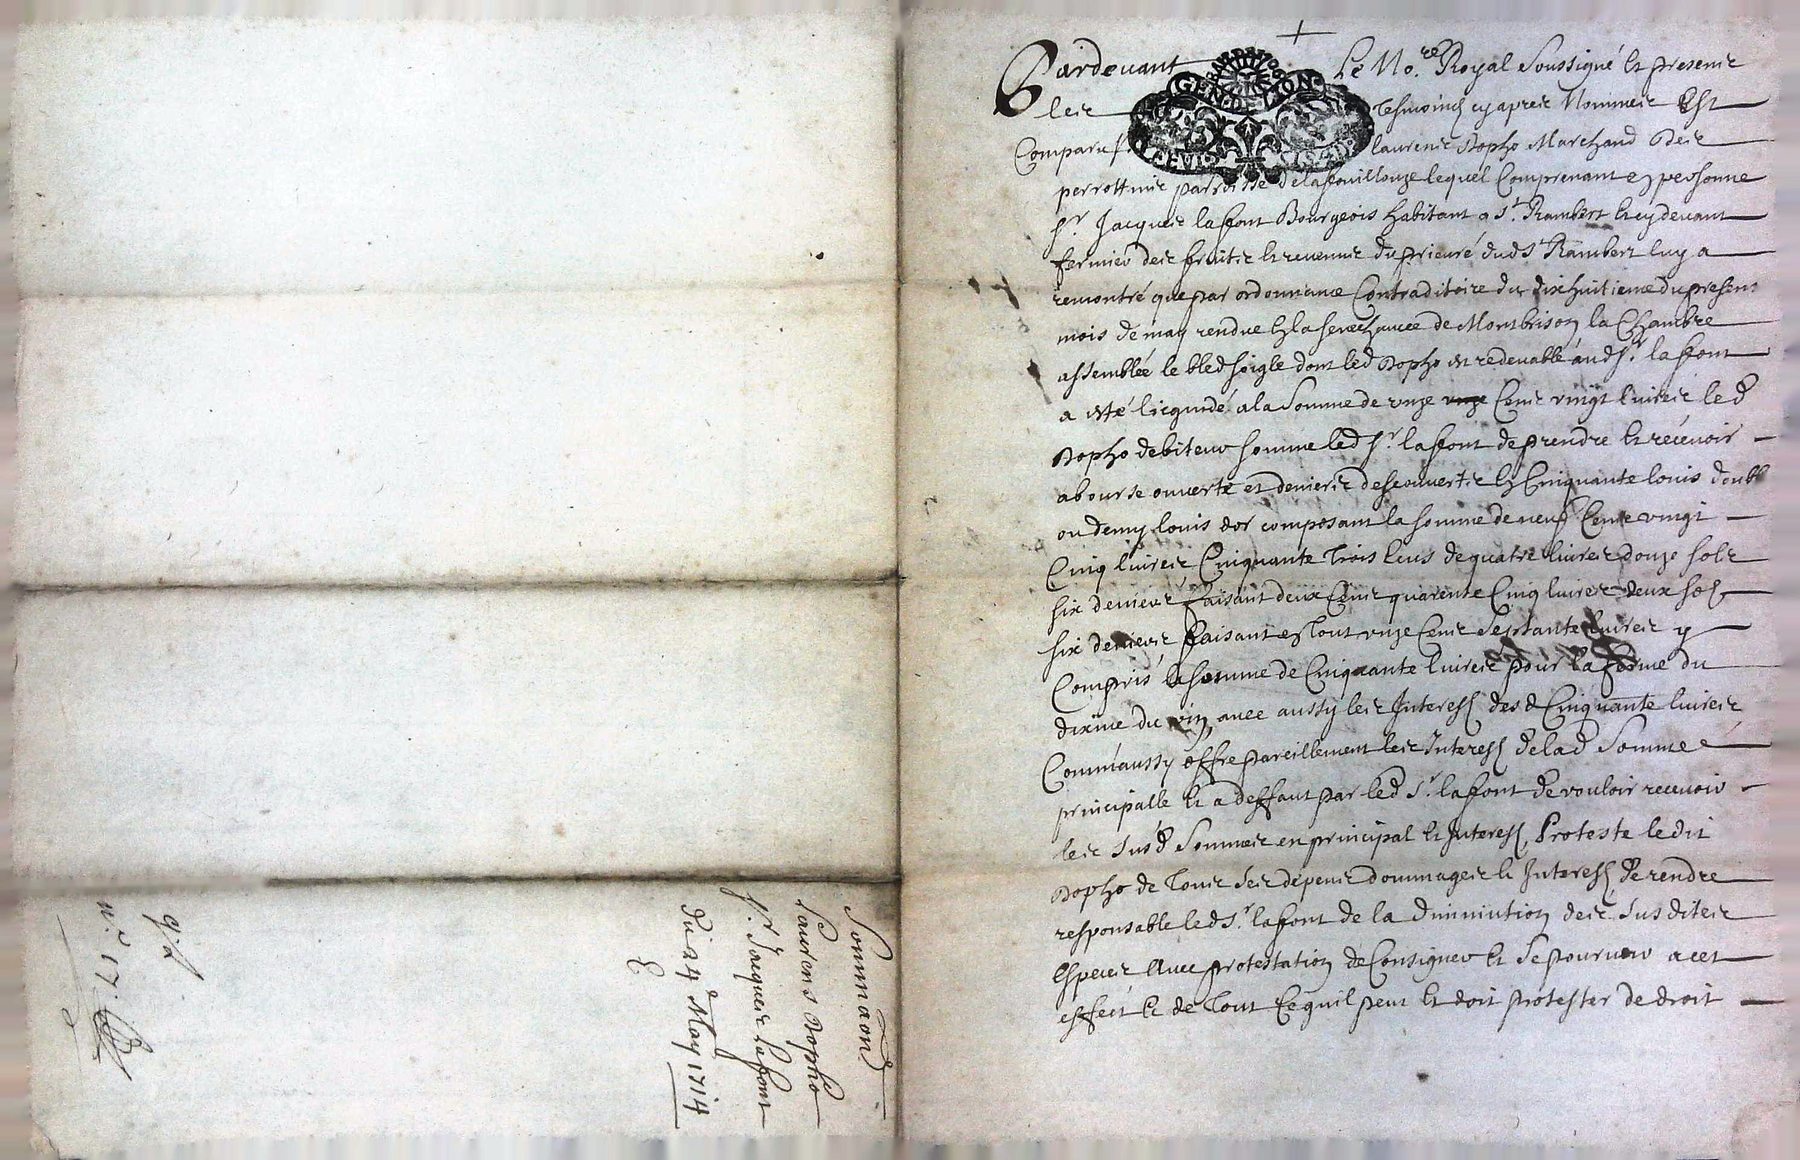 Pardevant Le No.re Royal Soussigné Et presence
les Tesmoings cy apres Nommes Est
Comparu sr laurens Bopho Marchand des
perrottins parroisse de lafouillouze lequel Comprenant en personne
sr. Jacques laffont Bourgeois habitant a st Rambert Et cy devant
fermier des fruits Et revenus du prieuré dud st Rambert luy a
remontré que par ordonnance Contraditoire du dixhuitieme du present
mois de may rendue En la senechaucee de Montbrison la Chambre
assemblée le bled soigle dont led Bopho est redevable aud sr. laffont
a esté licquidé a la Somme de unze Cens vingt livres le d
Bopho debiteur somme led sr. laffont de prendre Et recevoir
a bourse ouverte et deniers descouverts En Cinquante louis doubl
ou demy louis dor composant la somme de neuf Cens vingt
Cinq livres Cinquante Trois Ecus de quatre livres douze sols
six deniers faisant deux Cens quarente Cinq livres deux sols
six deniers faisant en Tout unze Cens Septante livres y
Compris la somme de Cinquante livres pour la ferme du
dixme du vin avec aussy les Interests des d Cinquante livres
Comm'aussy offre pareillement les Interests de lad Somme
principalle Et a deffaut par led sr. laffont de vouloir recevoir
les susd Sommes en principal Et Interests, Proteste ledit
Bopho de Tous ses depens dommages Et Interests de rendre
responsable led sr. laffont de la diminution des susdites
Especes Avec protestation de Consigner Et se pourvoir a cet
effect Et de Tout Ce quil peut Et doit protester de droit
Sommaon
Laurens Bopho
sr. Jacques laffont
du 24e May 1714
n.o 17.